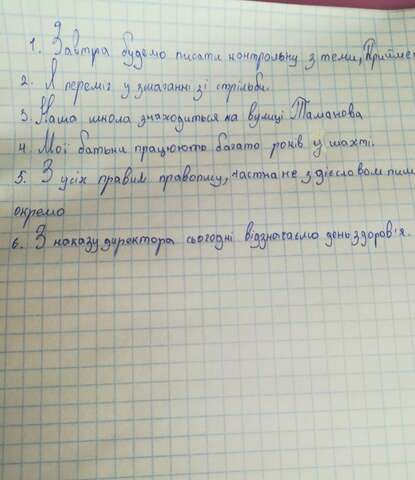 9
1. Завтра будемо писати контрольну з теми „Приймен
2. Я переміг у змаганні зі стрільби.
3. Наша школа знаходиться на вулиці Таманова
4. Мої батьки працюють багато років у шахті.
5. З усіх правил правопису, частка не з дієсловом пиш
окремо
6. З наказу директора сьогодні відзначаємо день здоров'я.